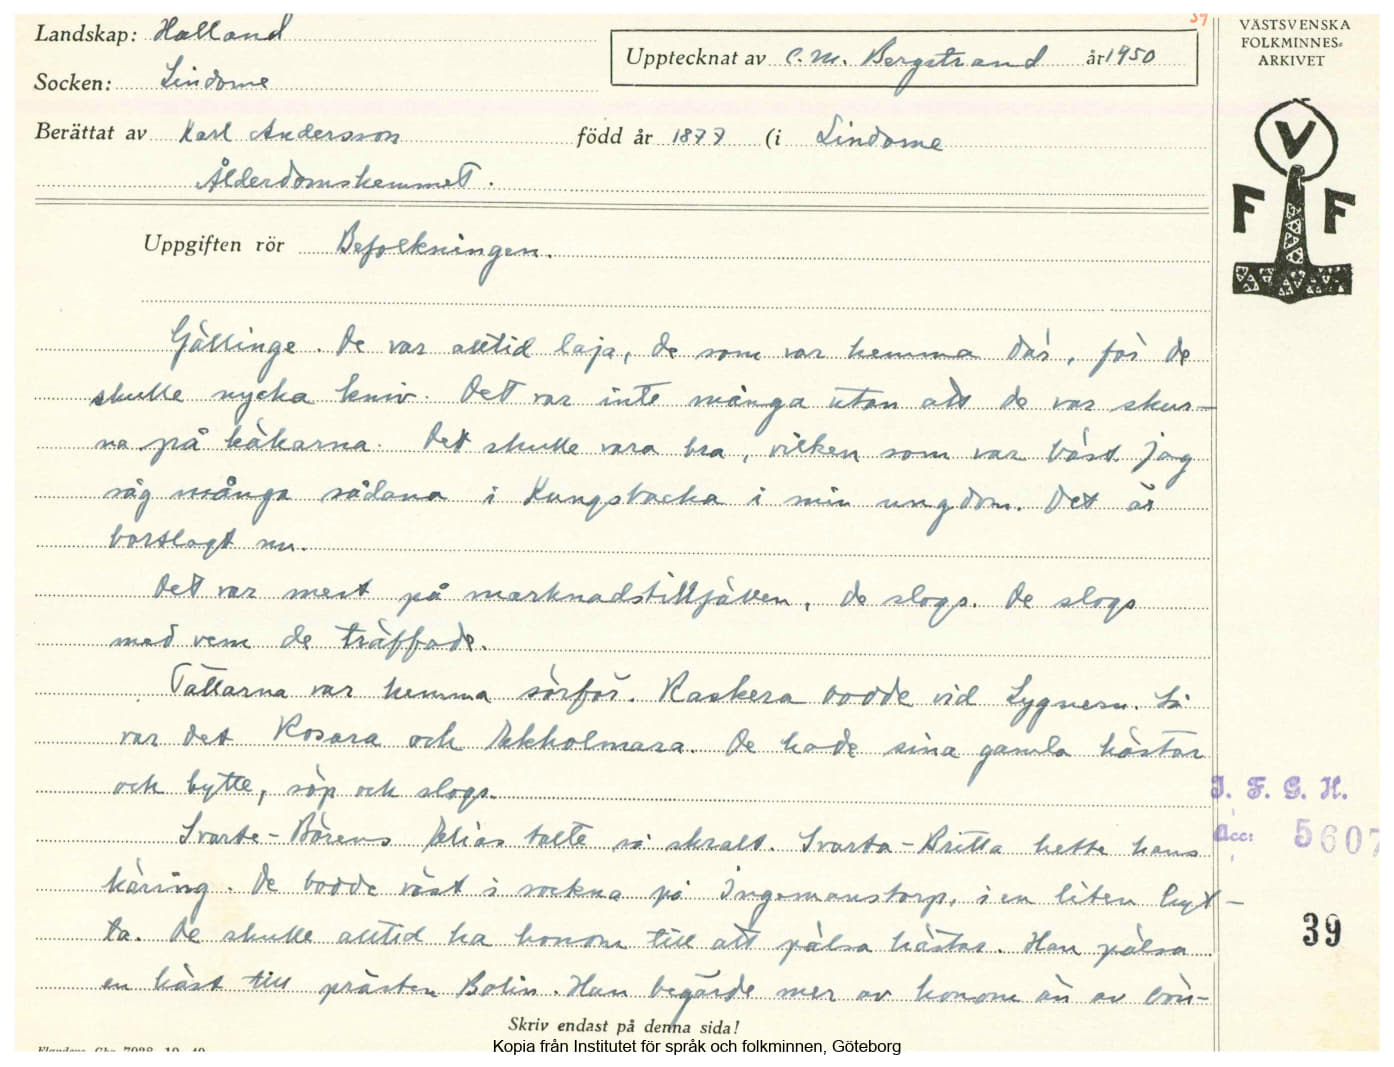 Landskap: Halland
Socken: Lindome
Upptecknat av C. M. Bergstrand år 1950
Berättat av Karl Andersson född år 1877 (i Lindome
Ålderdomshemmet.
Uppgiften rör Befolkningen.
39
VÄSTSVENSKA
FOLKMINNES-
ARKIVET
V
F F
Gällinge. De var alltid laja, de som var hemma där, för de
skulle nycka kniv. Det var inte många utan att de var skur-
na på käkarna. Det skulle vara bra, vilken som var bäst. Jag
såg många sådana i Kungsbacka i min ungdom. Det är
bortlagt nu.
Det var mest på marknadstillfällen, de slogs. De slogs
med vem de träffade.
Tattarna var hemma sörför. Raskera bodde vid Lygnern. Så
var det Rosara och Ekholmara. De hade sina gamla hästar
och bytte, söp och slogs.
Svarte-Börens Elias talte så skralt. Svarta-Britta hette hans
käring. De bodde väst i sockna på Ingemanstorp, i en liten hyt-
ta. De skulle alltid ha honom till att pälsa hästar. Han pälsa
en häst till prästen Bolin. Han begärde mer av honom än av bön-
I. F. G. H.
Acc: 5607
39
Skriv endast på denna sida!
Kopia från Institutet för språk och folkminnen, Göteborg